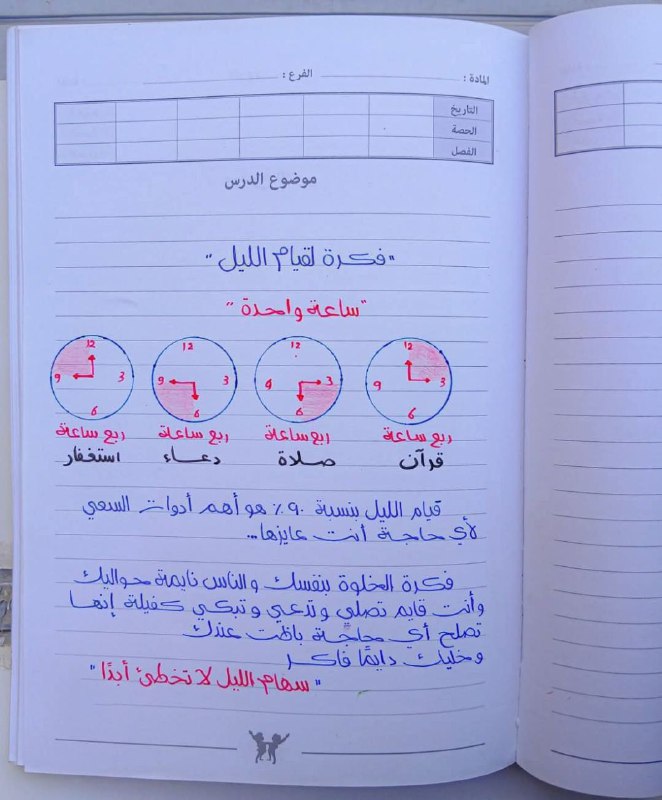 المادة : الفرع :
التاريخ
الحصة
الفصل
موضوع الدرس
"فكرة لقيام الليل"
"ساعة واحدة"
12 12 12 12
3 9 3 9 3 9 3 9
6 6 6 6
ربع ساعة ربع ساعة ربع ساعة ربع ساعة
قرآن صلاة دعاء استغفار
قيام الليل بنسبة ٩٠٪ هو أهم أدوات السعي
لأي حاجة أنت عايزها..
فكرة الخلوة بنفسك والناس نايمة حواليك
وأنت قايم تصلي وتدعي وتبكي كفيلة إنها
تصلح أي حاجة باظت عندك
وخليك دايمًا فاكر
"سهام الليل لا تخطئ أبدًا"